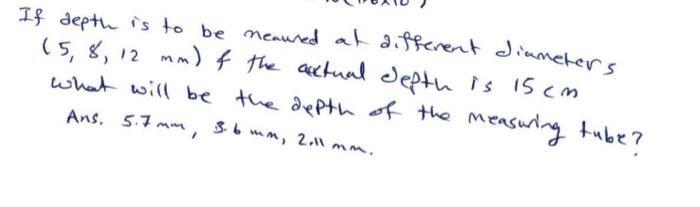 If depth is to be meaured at different diameters
(5, 8, 12 mm) & the actual depth is 15 cm
what will be the depth of the measuring tube?
Ans. 5.7 mm, 3.6 mm, 2.11 mm.